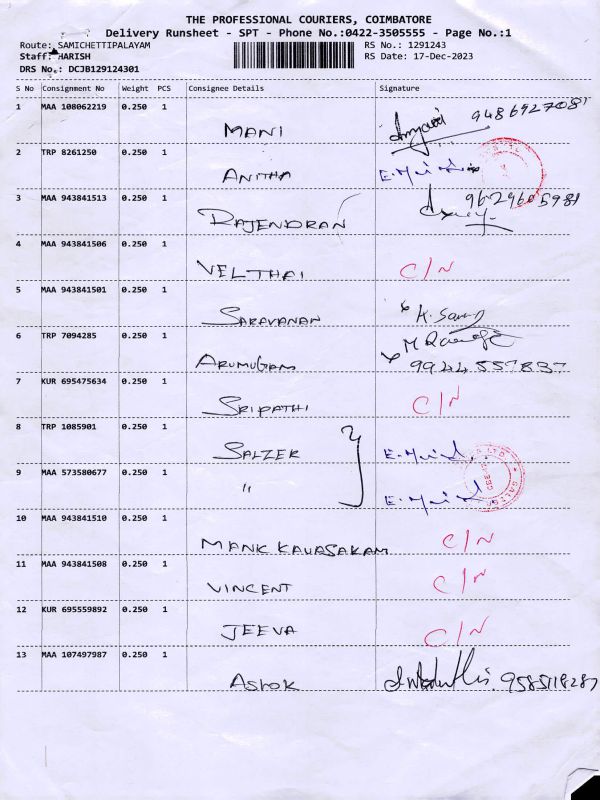 THE PROFESSIONAL COURIERS, COIMBATORE
Delivery Runsheet - SPT - Phone No.:0422-3505555 - Page No.:1
Route: SAMICHETTIPALAYAM RS No.: 1291243
Staff: HARISH RS Date: 17-Dec-2023
DRS No.: DCJB129124301
S No Consignment No Weight PCS Consignee Details Signature
1 MAA 108062219 0.250 1 MANI 9486927081
2 TRP 8261250 0.250 1 ANITHA
3 MAA 943841513 0.250 1 RAJENDRAN 9629605981
4 MAA 943841506 0.250 1 VELTHAI C/N
5 MAA 943841501 0.250 1 SARAVANAN K.
6 TRP 7094285 0.250 1 ARUMUGAM M
9944557837
7 KUR 695475634 0.250 1 SRIPATHI C/N
8 TRP 1085901 0.250 1 SALZER
9 MAA 573580677 0.250 1 "
10 MAA 943841510 0.250 1 MANIKKAVASAKAM C/N
11 MAA 943841508 0.250 1 VINCENT C/N
12 KUR 695559892 0.250 1 JEEVA C/N
13 MAA 107497987 0.250 1 ASHOK